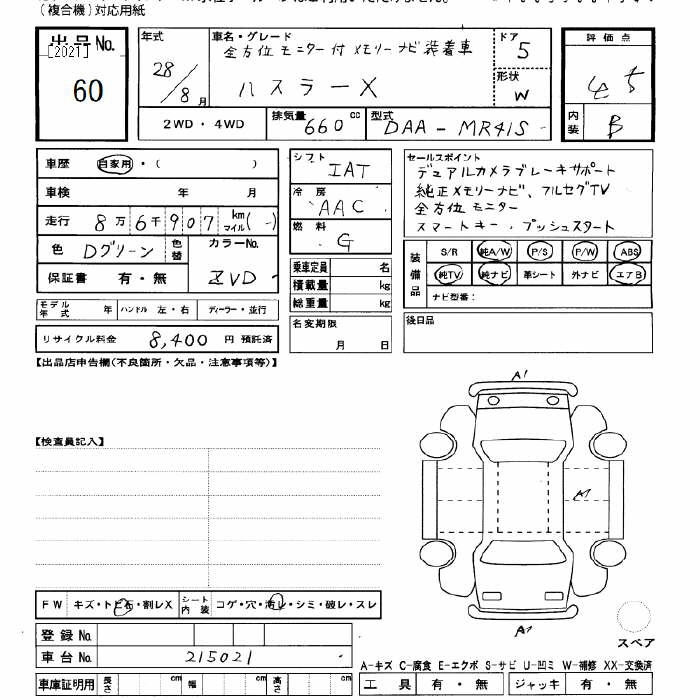 (複合機)対応用紙
出品No.
[2021]
60
年式
28/8月
車名・グレード
全方位モニター付メモリーナビ装着車
ハスラーX
ドア
5
形状
W
評価点
4.5
内装
B
2WD・4WD
排気量 660cc
型式 DAA-MR41S
車歴 自家用・( )
車検 年 月
走行 8万6千907 km マイル(-)
色 Dグリーン 色替
カラーNo. ZVD
保証書 有・無
モデル年式 年 ハンドル 左・右 ディーラー・並行
リサイクル料金 8,400円 預託済
シフト IAT
冷房 AAC
燃料 G
乗車定員 名
積載量 kg
総重量 kg
名変期限 月 日
セールスポイント
デュアルカメラブレーキサポート
純正メモリーナビ、フルセグTV
全方位モニター
スマートキー、プッシュスタート
装備品
S/R 純A/W P/S P/W ABS
純TV 純ナビ 革シート 外ナビ エアB
ナビ型番:
後日品
【出品店申告欄(不良箇所・欠品・注意事項等)】
【検査員記入】
A1
A1
A1
FW キズ・トビ石・割レX シート内装 コゲ・穴・汚レ・シミ・破レ・スレ
登録No.
車台No. 215021
車庫証明用 長さ cm 幅 cm 高さ cm
スペア
A-キズ C-腐食 E-エクボ S-サビ U-凹ミ W-補修 XX-交換済
工具 有・無 ジャッキ 有・無